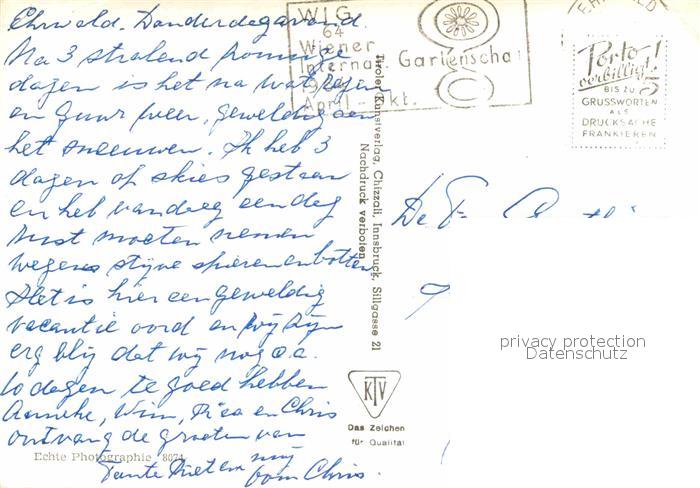 Ehrwald. Donderdagavond.
Na 3 stralend zonnige
dagen is het na wat regen
en guur weer, geweldig aan
het sneeuwen. Ik heb 3
dagen op skies gestaan
en heb vandaag een dag
rust moeten nemen
wegens stijve spieren en botten
Het is hier een geweldig
vacantie oord en wij zijn
erg blij dat wij nog o.a.
10 dagen te goed hebben
Anneke, Wim, Ria en Chris
ontvang de groeten van
Tante Riet en mij
oom Chris.
Echte Photographie 8074
WIG
64
Wiener
Internat. Gartenschau
April - Okt.
Tiroler Kunstverlag, Chizzali, Innsbruck, Sillgasse 21
Nachdruck verboten
KTV
Das Zeichen
für Qualität
Porto-
verbilligt!
BIS ZU 5
GRUSSWORTEN
ALS
DRUCKSACHE
FRANKIEREN
De
privacy protection
Datenschutz